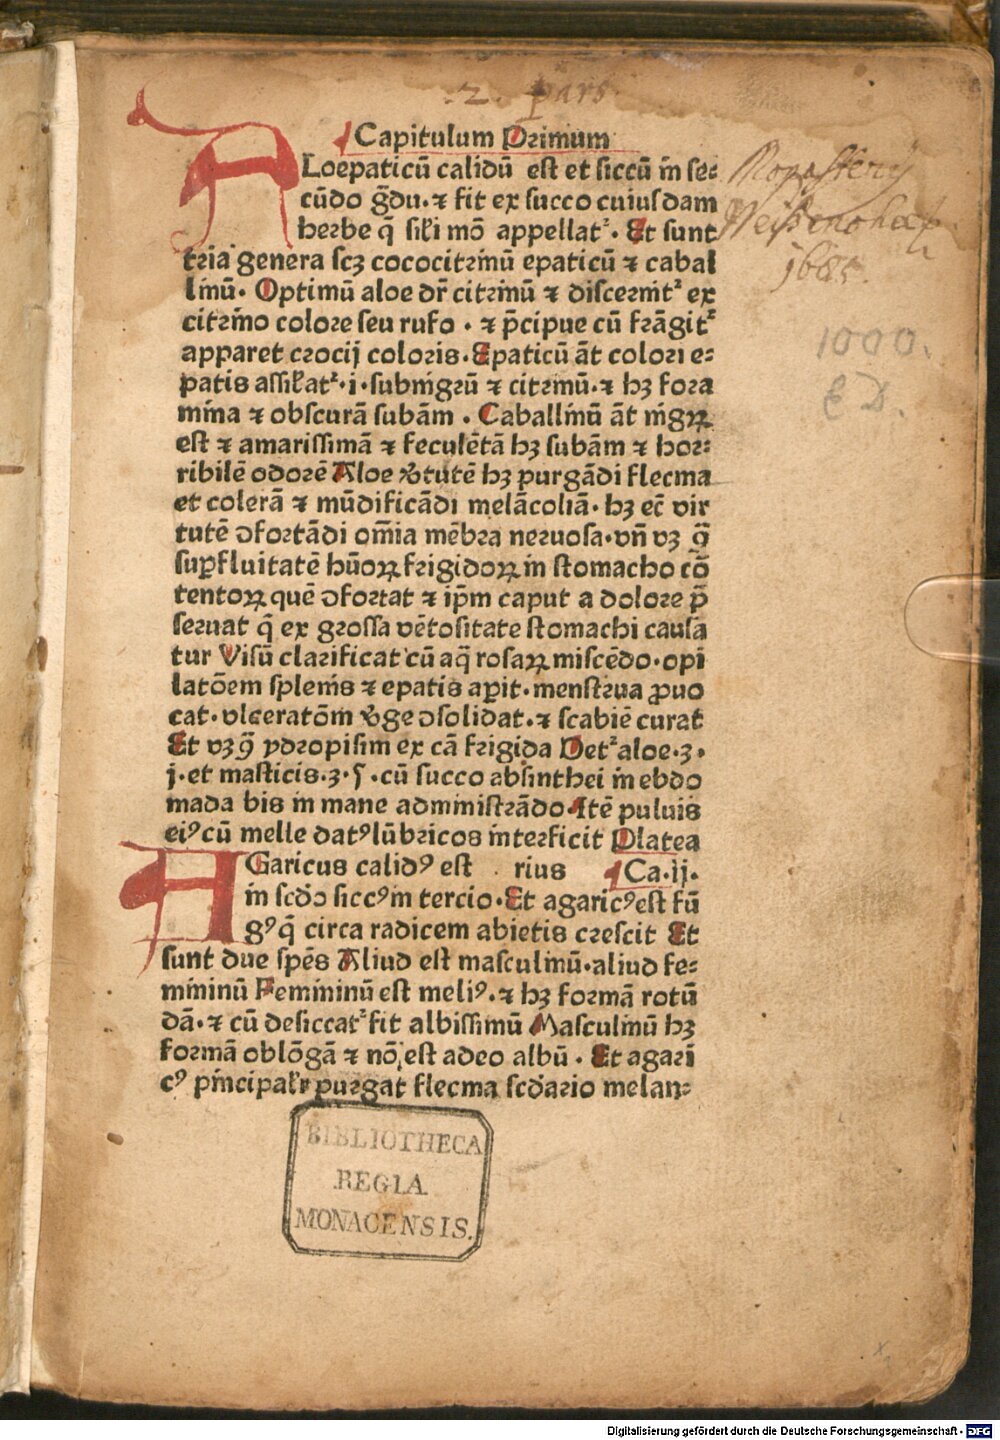 .2. pars
Capitulum Primum
ALoepaticū calidū est et siccū in se⸗
cūdo g̃du. ⁊ fit ex succo cuiusdam
herbe q̄ sil'i mō appellatᷣ. Et sunt
tria genera scꝫ cococitrinū epaticū ⁊ cabal
linū. Optimū aloe dr̄ citrinū ⁊ discernitᷣ ex
citrino colore seu rufo. ⁊ p̄cipue cū frāgitᷣ
apparet crocij coloris. Epaticū āt colori e⸗
patis assil'atᷣ. i. subnigrū ⁊ citrinū. ⁊ hꝫ fora
mina ⁊ obscurā subām. Caballinū āt nigrꝝ
est ⁊ amarissimā ⁊ feculētā hꝫ subām ⁊ hor⸗
ribilē odorē Aloe v̓tutē hꝫ purgādi flecma
et colerā ⁊ mūdificādi melācoliā. hꝫ ec̄ vir
tutē ꝯfortādi om̄ia mēbra neruosa. vn̄ vꝫ ꝯ̄
suꝑfluitatē hūoꝝ frigidoꝝ in stomacho cō
tentoꝝ quē ꝯfortat ⁊ ip̄m caput a dolore p̄
seruat q̄ ex grossa vētositate stomachi causā
tur Visū clarificat cū aq̄ rosaꝝ miscēdo. opi
latōem splenis ⁊ epatis aꝑit. menstrua ꝓuo
cat. vlceratōm v̓ge ꝯsolidat. ⁊ scabiē curat
Et vꝫ ꝯ̄ ydropisim ex cā frigida Detᷣ aloe. ʒ.
j. et masticis. ʒ. ſ. cū succo absinthei in ebdo
mada bis in mane administrādo Itē puluis
eiꝰ cū melle datꝰ lūbricos interficit Platea
AGaricus calidꝰ est rius Ca. ij.
in scd̄o siccꝰ in tercio. Et agaricꝰ est fū
gꝰ q̄ circa radicem abietis crescit Et
sunt due sp̄es Aliud est masculinū. aliud fe⸗
mininū Femininū est meliꝰ. ⁊ hꝫ formā rotū
dā. ⁊ cū desiccatᷣ fit albissimū Masculinū hꝫ
formā oblōgā ⁊ nō est adeo albū. Et agari
cꝰ principal'r purgat flecma scd̄ario melan⸗
Monastery
Weissenohe
1685.
1000.
BIBLIOTHECA
REGIA
MONACENSIS.
Digitalisierung gefördert durch die Deutsche Forschungsgemeinschaft - DFG